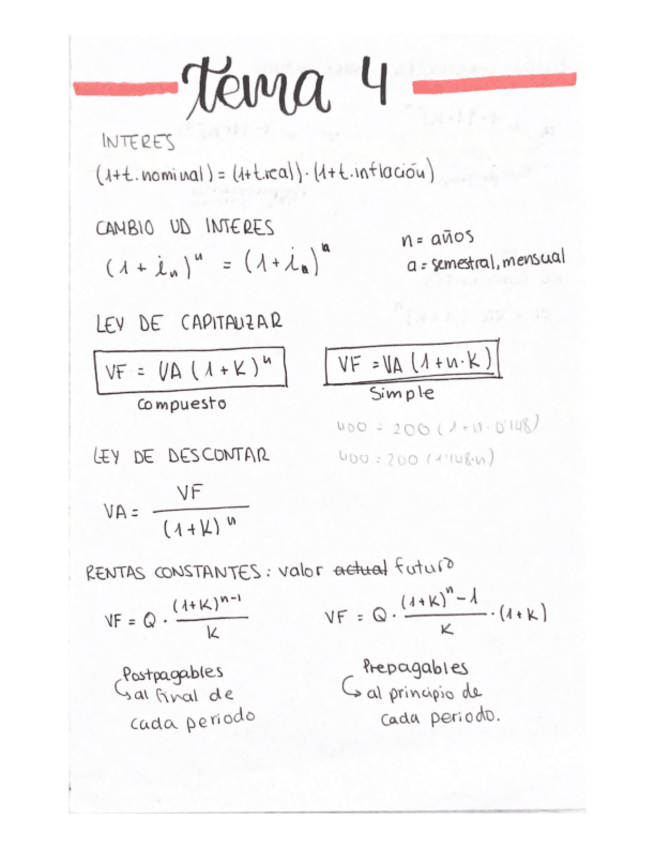 tema 4
INTERES
(1+t.nominal) = (1+t.real) · (1+t.inflación)
CAMBIO UD INTERES
(1 + iₙ)ⁿ = (1 + iₐ)ᵃ
n = años
a = semestral, mensual
LEY DE CAPITALIZAR
VF = VA (1 + K)ⁿ
Compuesto
VF = VA (1 + n · K)
Simple
400 = 200 (1 + n · 0'148)
400 = 200 (1'148 · n)
LEY DE DESCONTAR
VA = VF / (1 + K)ⁿ
RENTAS CONSTANTES: valor actual futuro
VF = Q · (1+K)ⁿ⁻¹ / K
Postpagables
↳ al final de
cada periodo
VF = Q · (1+K)ⁿ - 1 / K · (1+K)
Prepagables
↳ al principio de
cada periodo.